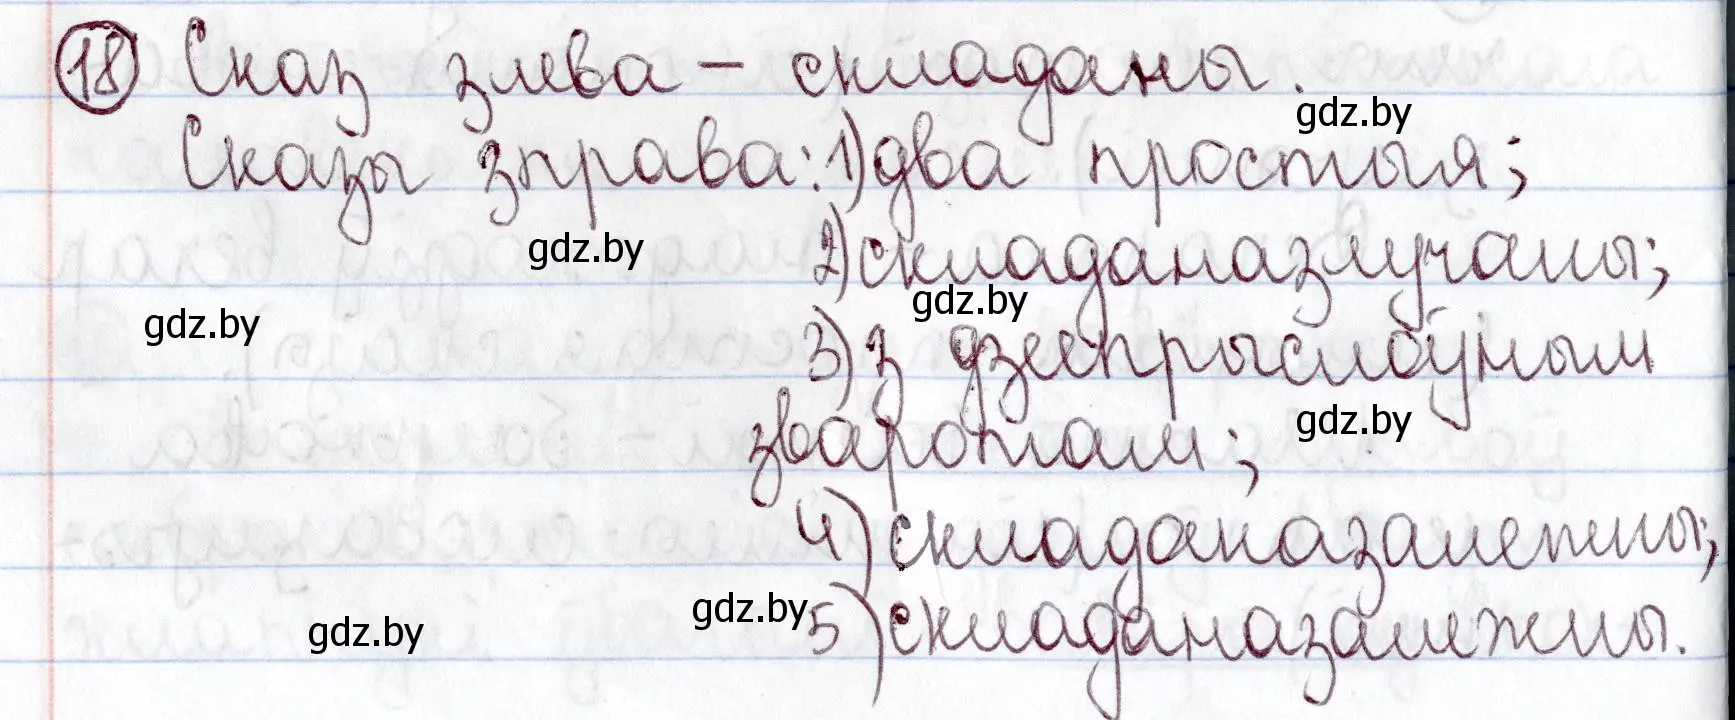 18 Сказ злева – складаны.
gdz.by
Сказы зправа: 1) два простыя;
gdz.by
2) складаназлучаны;
gdz.by
gdz.by
3) з дзеепрыслоўным
gdz.by
зваротам;
4) складаназалежны;
gdz.by
gdz.by
5) складаназалежны.